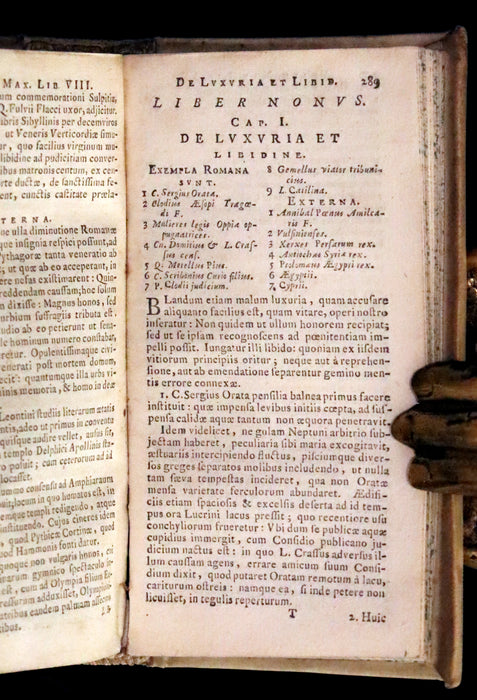 Max. Lib. VIII.
um commemorationi Sulpitia,
Q. Fulvii Flacci uxor, adjicitur.
libris Sibyllinis per decenviros
ut Veneris Verticordiæ simu-
, quo facilius virginum mu-
libidine ad pudicitiam conver-
ibus matronis centum, ex cen-
orte ductæ, de sanctissima fe-
t, cunctis castitate præla-
TERNA.
ne ulla diminutione Romanæ
que insignia respici possunt, ad
Pythagoræ tanta veneratio ab
t, ut quæ ab eo acceperant, in
ere nefas existimarent: Quin-
reddendam causam; hoc solum
m dixisse: Magnus honos, sed
urbium suffragiis tributa est.
udio ab eo petierunt ut sena-
le hominum numero constabat,
eretur. Opulentissimaque civi-
venerati post mortem domum,
ecit: quantumque illa urbs vi-
inis memoria, & homo in deæ
Leontini studiis literarum ætatis
ntis, adeo ut primus in conventu
quisque audire vellet, ausus sit,
templo Delphici Apollinis sta-
o posuit; cum ceterorum ad id
locasset.
ummo consensu ad Amphiaraum
sit, locum in quo humatus est, in
mque templi redigendo, atque
instituendo. Cujus cineres idem
quod Pythicæ Cortinæ, quod
uod Hammonis fonti datur.
noque non vulgaris honos, cui
irarum gymnico spectaculo in-
est, cum ad Olympia filium Eu-
ressurum adduxisset, Olympio-
atribus eandem palmam assecutis
tibus.
De Luxuria et Libid. 289
LIBER NONVS.
Cap. I.
DE LVXVRIA ET
LIBIDINE.
Exempla Romana
sunt.
1 C. Sergius Orata.
2 Clodius Æsopi Tragœ-
di F.
3 Mulieres legis Oppiæ op-
pugnatrices.
4 Cn. Domitius & L. Cras-
sus cens.
5 Q. Metellus Pius.
6 C. Scribonius Curio filius.
7 P. Clodii judicium.
8 Gemellus viator tribuni-
cius.
9 L. Catilina.
Externa.
1 Annibal Pœnus Amilca-
ris F.
2 Vulsinienses.
3 Xerxes Persarum rex.
4 Antiochus Syriæ rex.
5 Ptolomæus Ægypti rex.
6 Ægyptii.
7 Cyprii.
Blandum etiam malum luxuria, quam accusare
aliquanto facilius est, quam vitare, operi nostro
inseratur: Non quidem ut ullum honorem recipiat;
sed ut se ipsam recognoscens ad pœnitentiam im-
pelli possit. Jungatur illi libido: quoniam ex iisdem
vitiorum principiis oritur; neque aut à reprehen-
sione, aut ab emendatione separentur gemino men-
tis errore connexæ.
1. C. Sergius Orata pensilia balnea primus facere
instituit: quæ impensa levibus initiis cœpta, ad sus-
pensa calidæ aquæ tantum non æquora penetravit.
Idem videlicet, ne gulam Neptuni arbitrio sub-
jectam haberet, peculiaria sibi maria excogitavit,
æstuariis intercipiendo fluctus, pisciumque diver-
sos greges separatos molibus includendo, ut nulla
tam sæva tempestas incideret, qua non Oratæ
mensa varietate ferculorum abundaret. Ædifi-
ciis etiam spaciosis & excelsis deserta ad id tem-
pus ora Lucrini lacus pressit; quo recentiore usu
conchyliorum frueretur: Vbi dum se publicæ aquæ
cupidius immergit, cum Considio publicano ju-
dicium nactus est: in quo L. Crassus adversus il-
lum caussam agens, errare amicum suum Consi-
dium dixit, quod putaret Oratam remotum à lacu,
cariturum ostreis: namque ea, si inde petere non
licuisset, in tegulis reperturum.
T
2. Huic